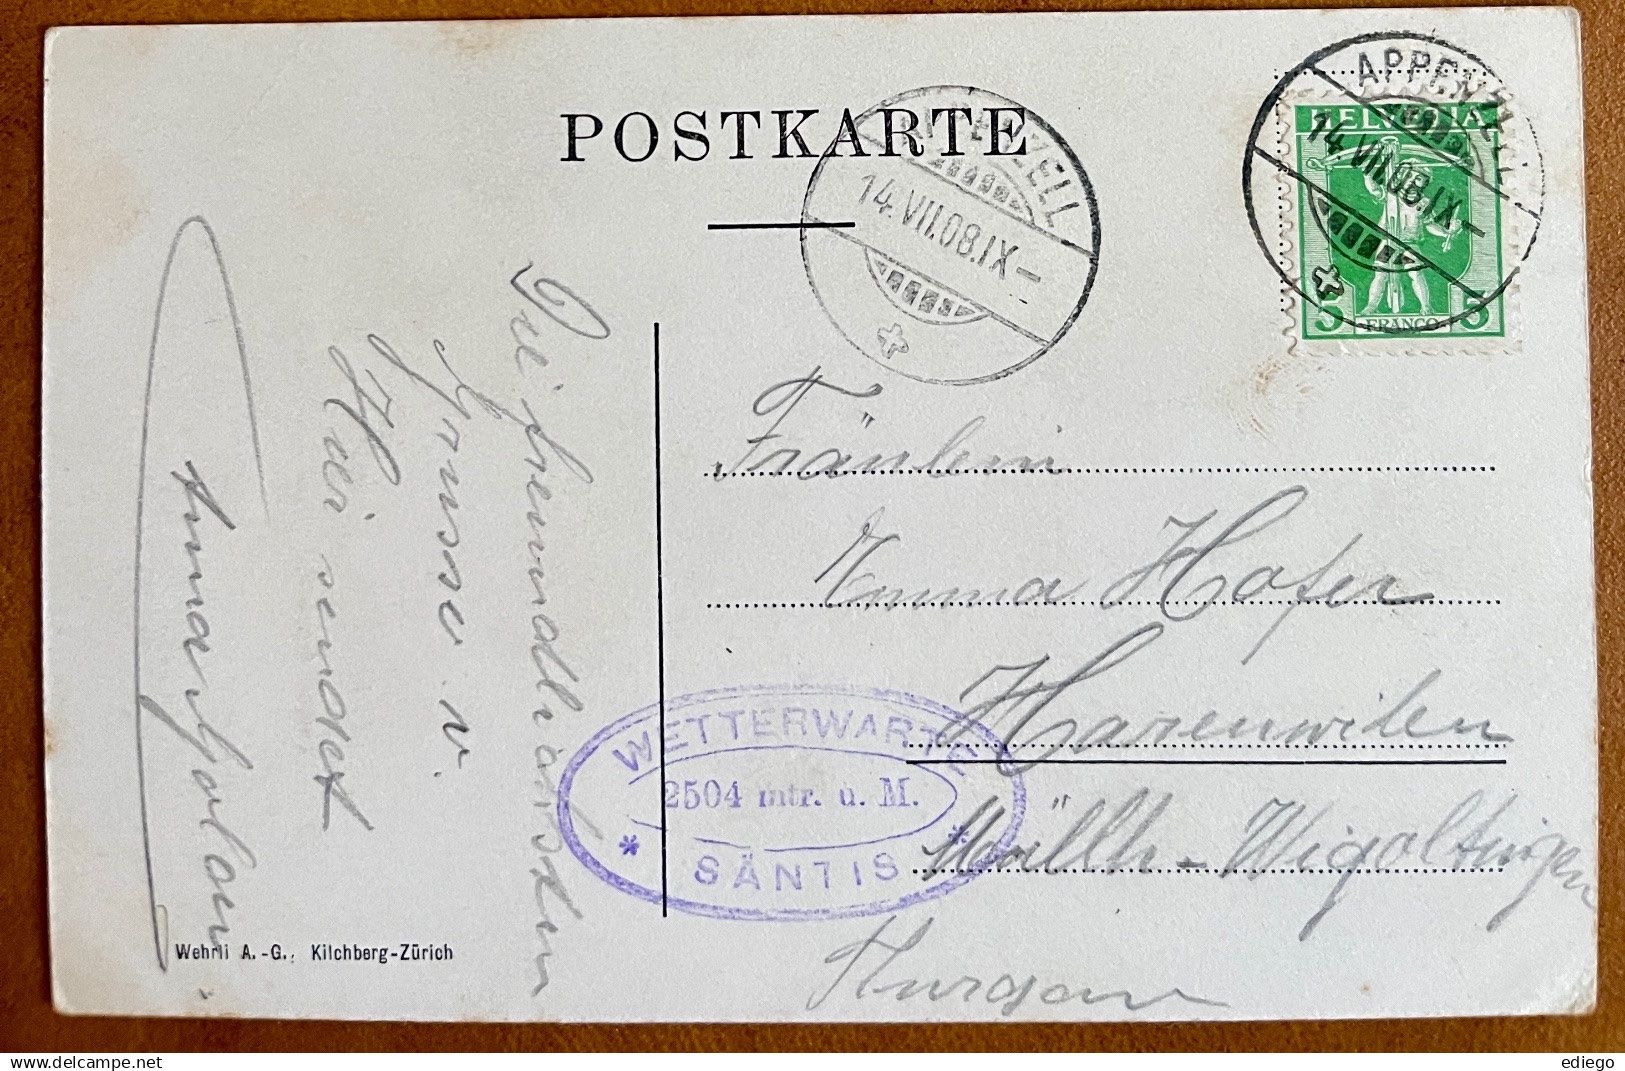 POSTKARTE
APPENZELL
14.VII.08.IX–
APPENZELL
14.VII.08.IX–
HELVETIA
5 FRANCO 5
Fräulein
Emma Hofer
Harenwilen
Müllh-Wigoltingen
Thurgau
WETTERWARTE
2504 mtr. u. M.
* SÄNTIS *
Die freundlichsten
Grüsse v.
hier sendet
Anna
Wehrli A.-G., Kilchberg-Zürich
ediego